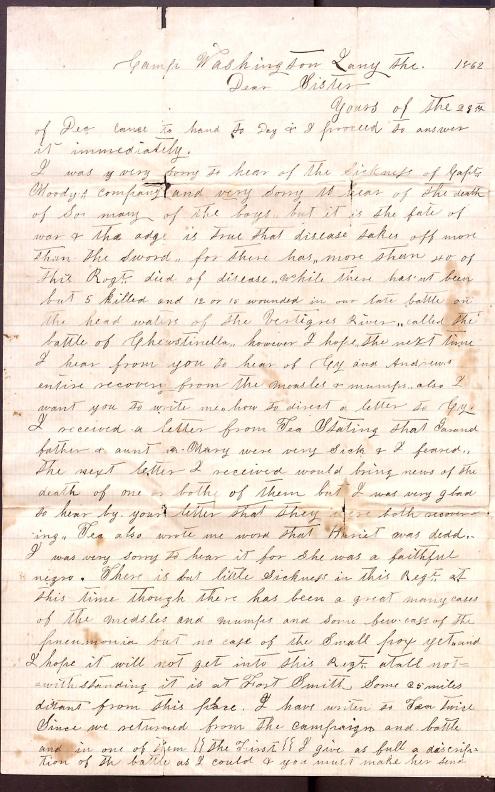 Camp Washington Jany the. 1862
Dear Sister
Yours of the 28th
of Dec came to hand to day & I proceed to answer
it immediately.
I was very sorry to hear of the Sickness of Capt
Moodys company and very sorry to hear of the death
of So many of the boys. but it is the fate of
war & tha adge is true that disease takes off more
than the Sword,, for there has,, more than 40 of
this Regt. died of disease,, while there has'nt been
but 5 killed and 12 or 15 wounded in our late battle on
the head waters of the Vertigres River,, called the
battle of Chewstinella,, however I hope the next time
I hear from you to hear of Cy and Andrews
entire recovery from the measles & mumps. also I
want you to write me how to direct a letter to Cy.
I received a letter from Tea Stating that Grand
father & aunt Mary were very Sick & I feared,,
the next letter I received would bring news of the
death of one or bothe of them but I was very glad
to hear by your letter that they were both recover
ing,, Tea also wrote me word that Harriet was dedd,,
I was very sorry to hear it for She was a faithful
negro. There is but little Sickness in this Regt. at
this time though there has been a great many cases
of the medsles and mumps and Some few cass of the
pneumonia but no case of the Small pox yet and
I hope it will not get into this Regt. atall not=
=withstanding it is at Fort Smith Some 25 miles
distant from this place. I have writen to Tea twice
Since we returned from the campaign and battle
and in one of them {{the First}} I give as full a discrip=
tion of th battle as I could & you must make her send